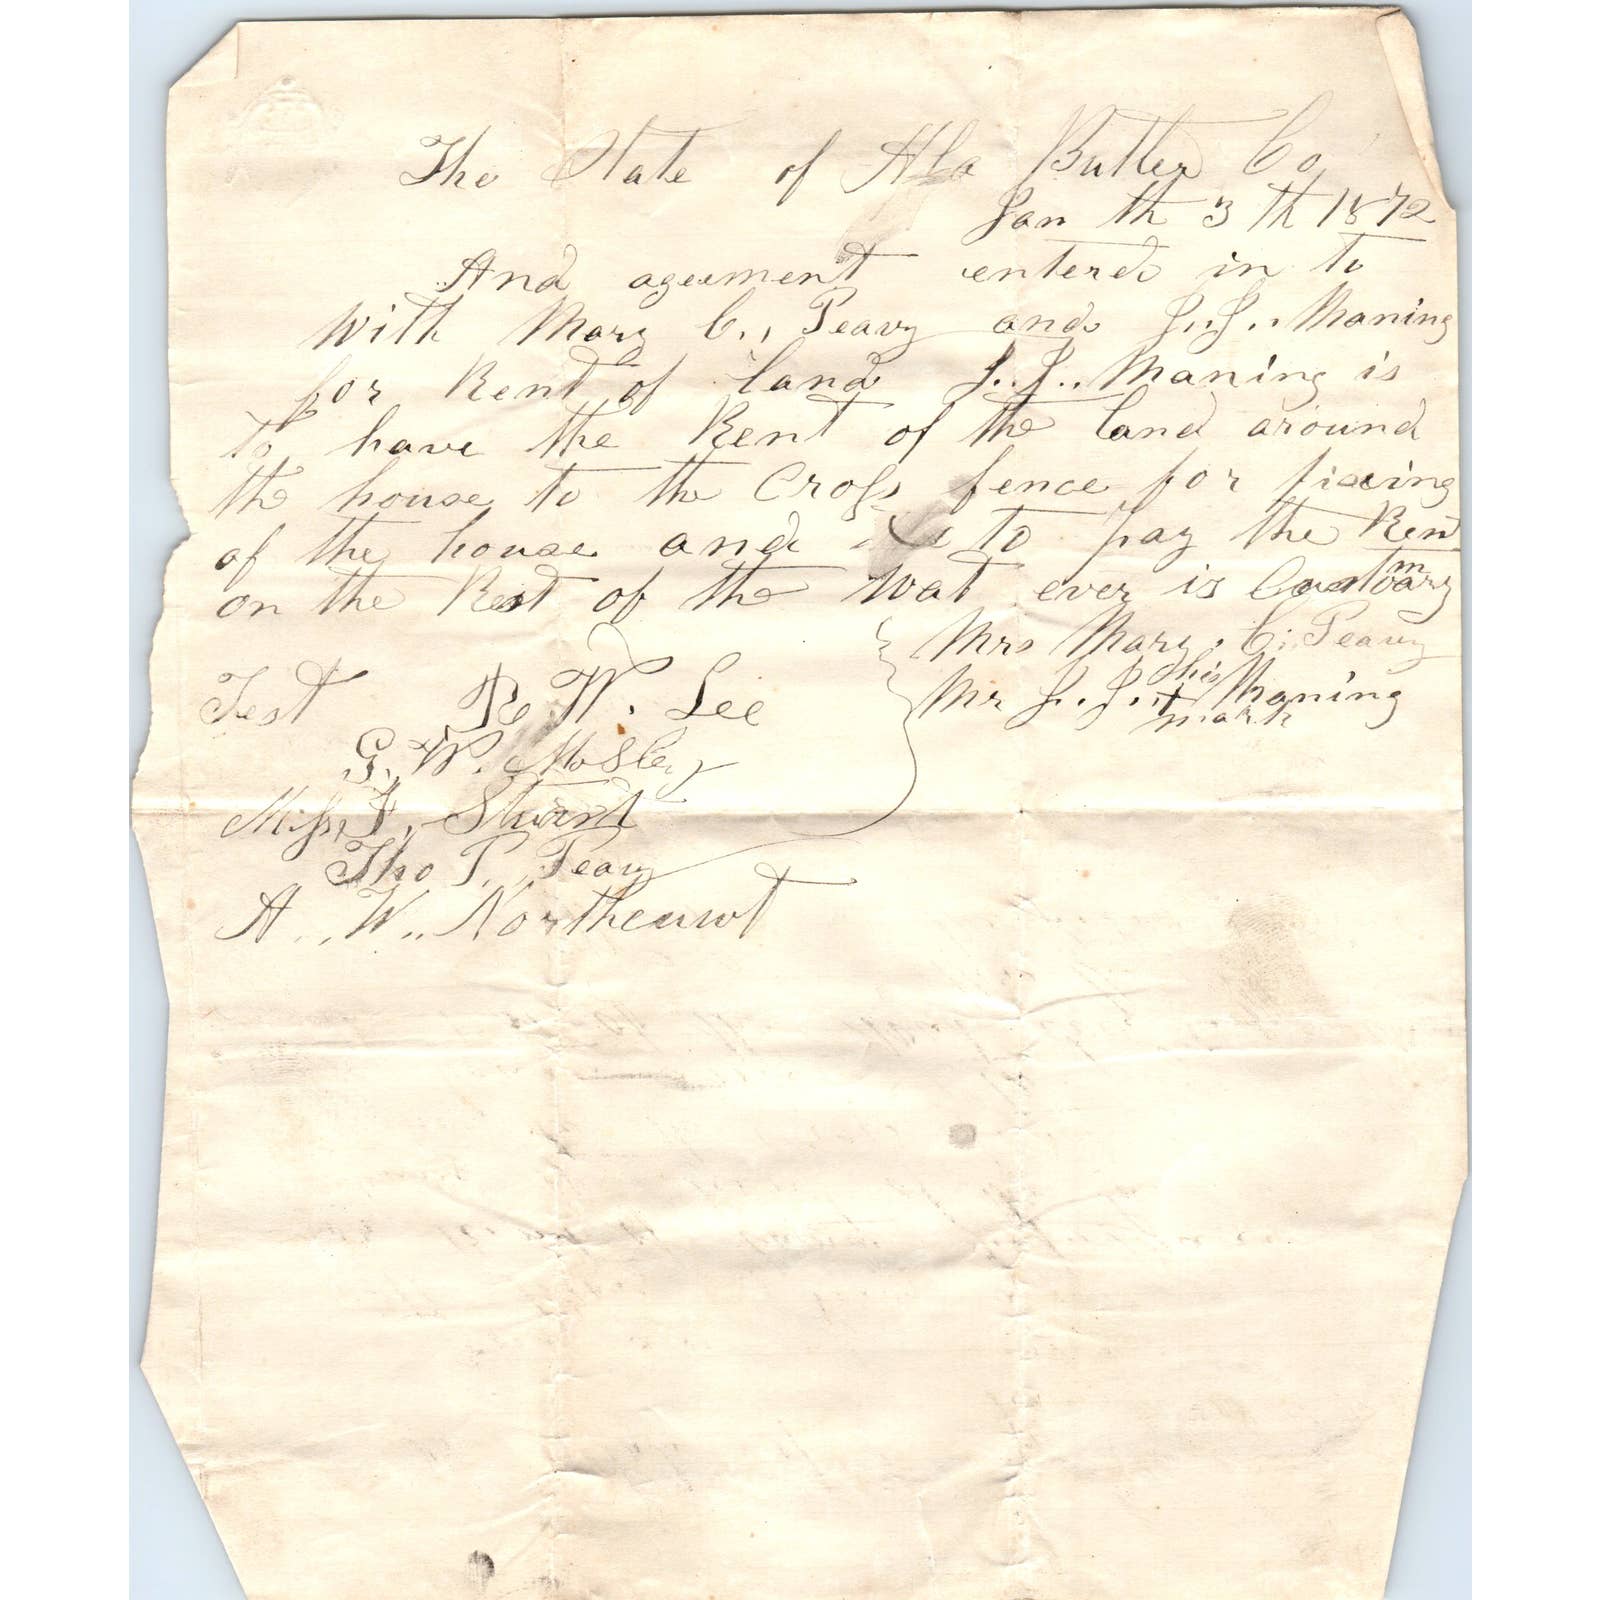 The State of Ala Butler Co
Jan th 3 th 1872
And ageement enterd in to
With Mary C., Peavy and J..J.. Maning
for Rent of land J..J.. Maning is
to have the Rent of the land around
the house to the Cross fence for fixing
of the house and is to pay the Ren
on the Rest of the Wat ever is Coustomary
Mrs Mary C. Peavy
Mr J. J.. his + mark Maning
Test R. W. Lee
G. W. Mosley
Miss, F, Stuart
Tho P. Peavy
A.., W.. Northcut